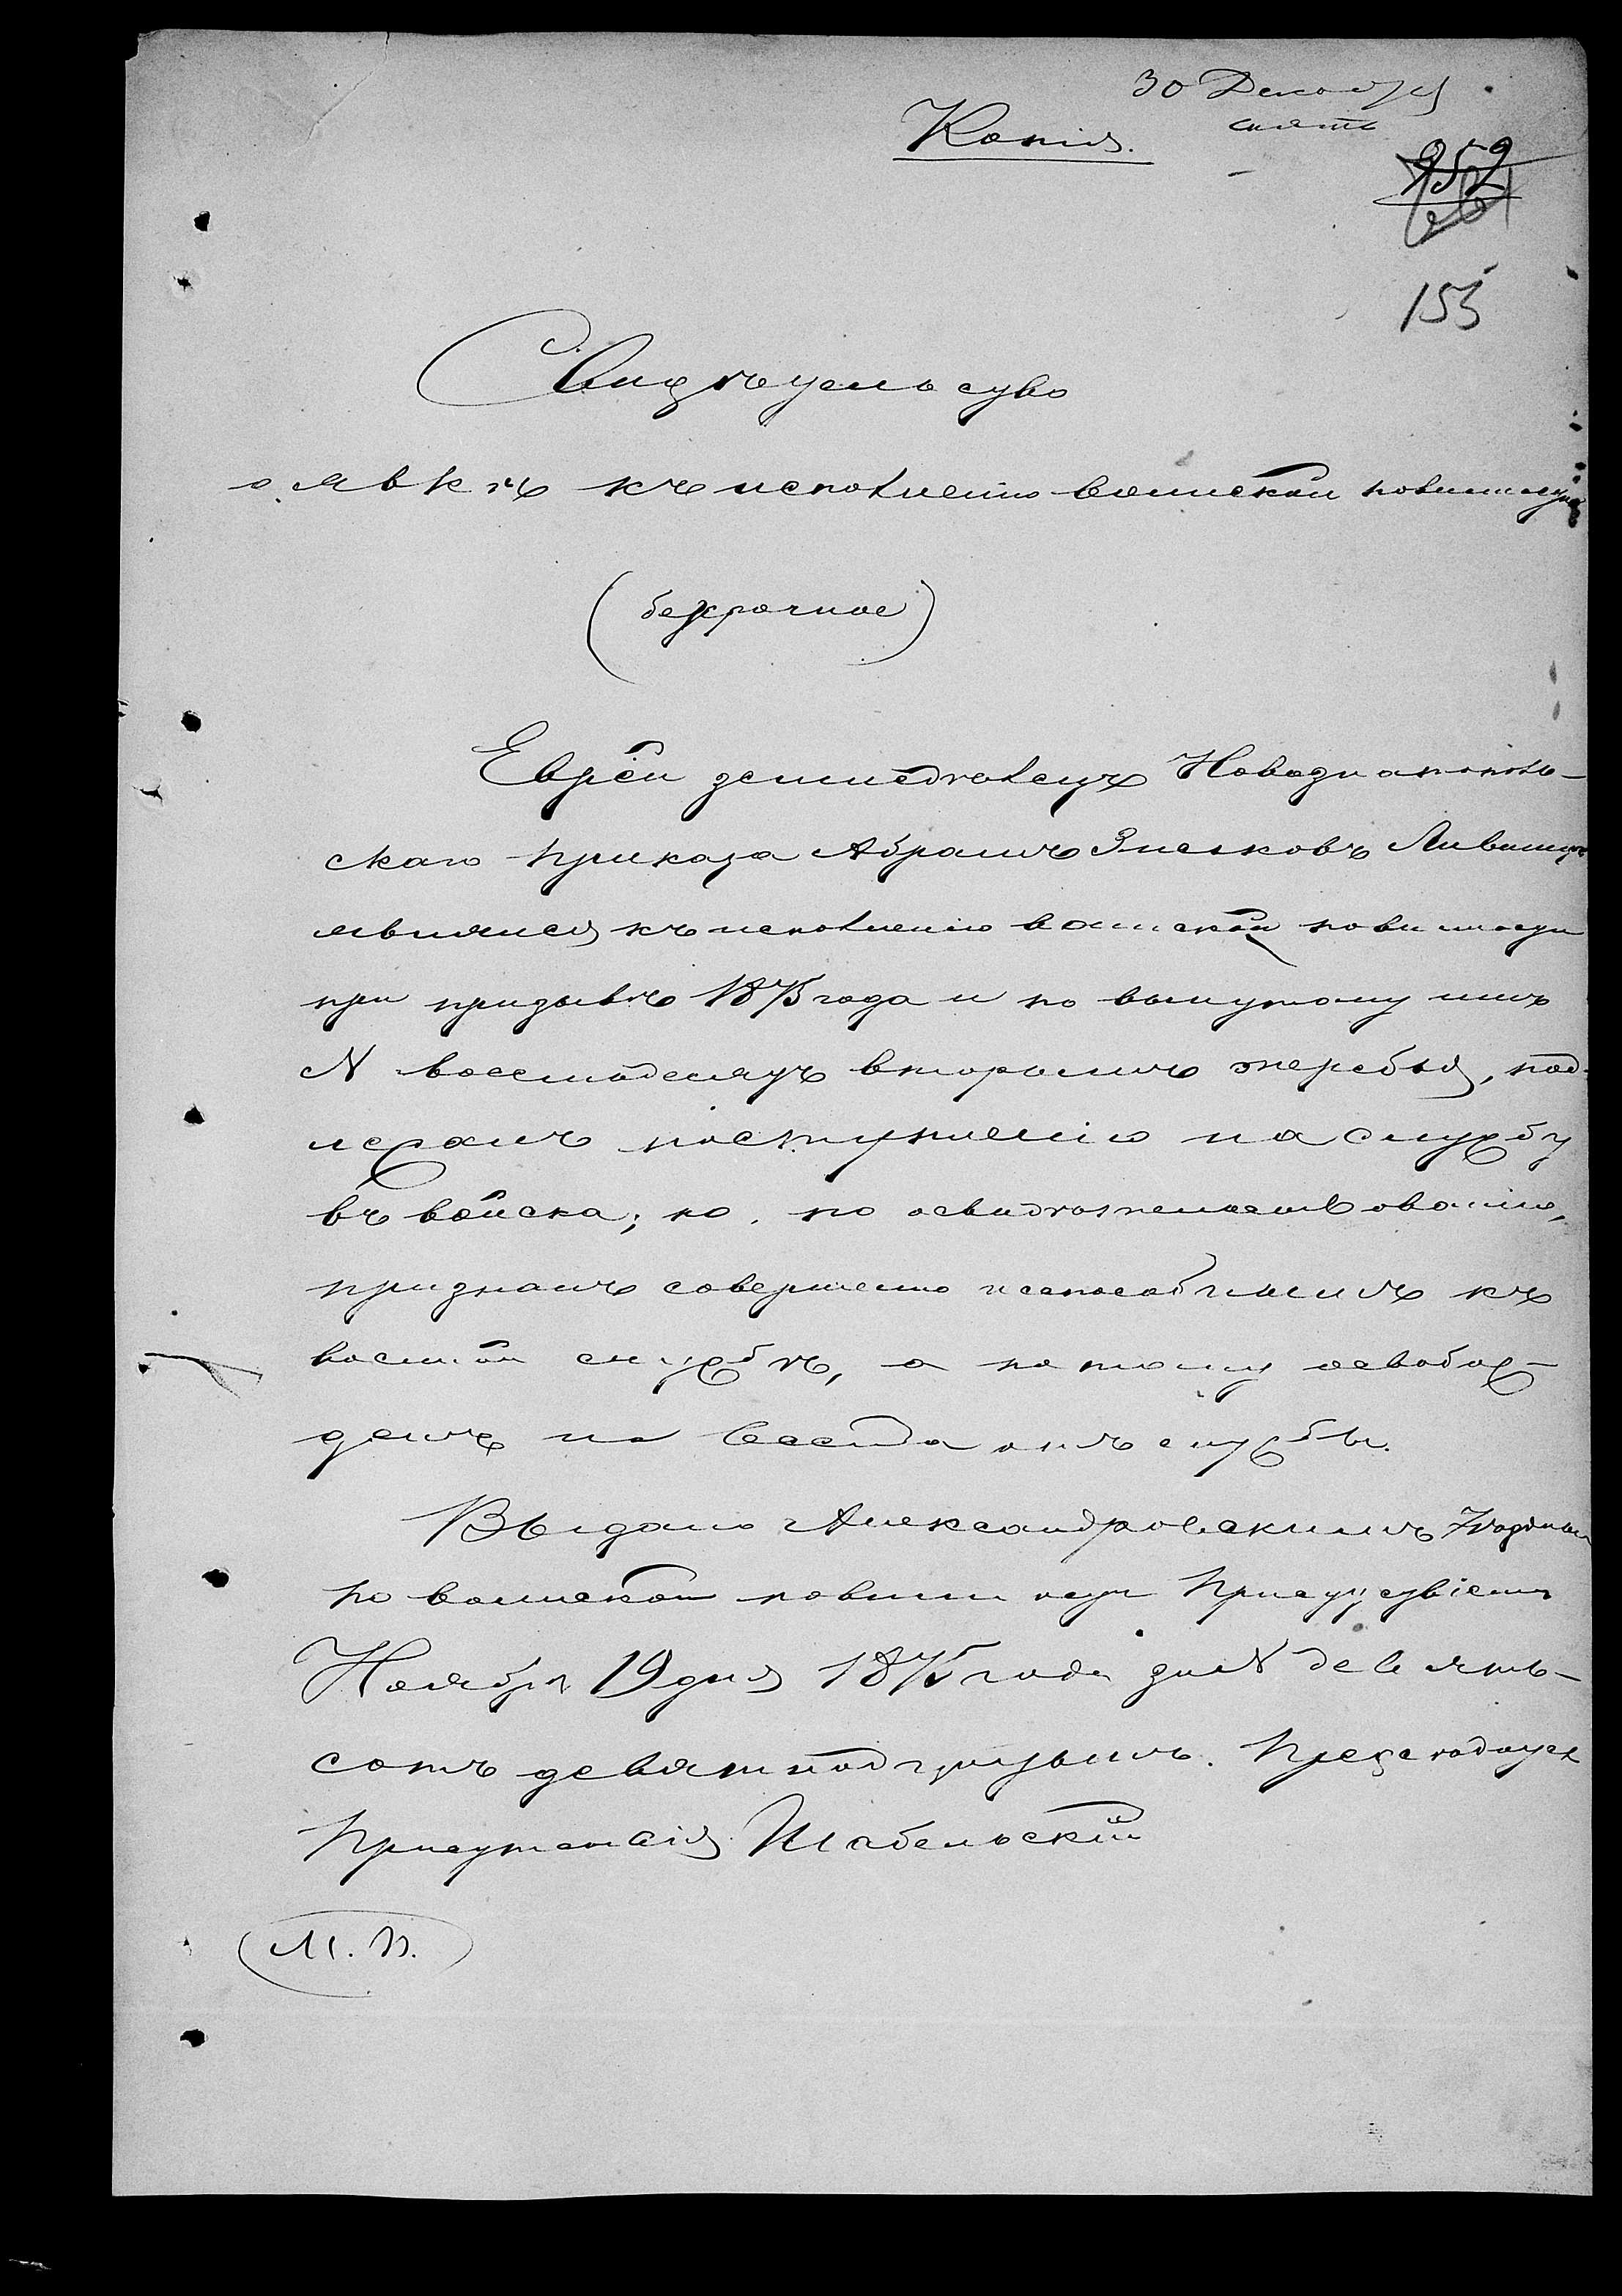 30 Декабря
Копія.
снять
952
153
Свидѣтельство
о явкѣ къ исполненію воинской повинности
(безсрочное)
Еврей земледѣлецъ Новозлатополь-
скаго приказа Абрамъ Лившицъ
явлился къ исполненію воинской повинности
при призывѣ 1875 года и по вынутому имъ
N восемьдесятъ второмъ жеребья, под-
лежалъ поступленію на службу
въ войска; но, по освидѣтельствованію,
признанъ совершенно неспособнымъ къ
военной службѣ, а потому освобож-
денъ на всегда отъ службы.
Выдано Александровскимъ Уѣзднымъ
по воинской повинности Присутствіемъ
Ноября 19 дня 1875 года за N девять-
сотъ девяносто Предсѣдатель
Присутствія Шабельскій
М. П.